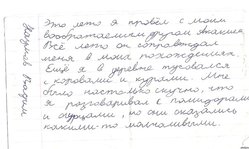 Это лето я провёл с моим
воображаемым другом
Всё лето он сопровождал
меня в моих похождениях.
Ещё я в деревне тусовался
с коровами и курами. Мне
было настолько скучно, что
я разговаривал с помидорами
и огурцами, но они оказались
какими-то молчаливыми.